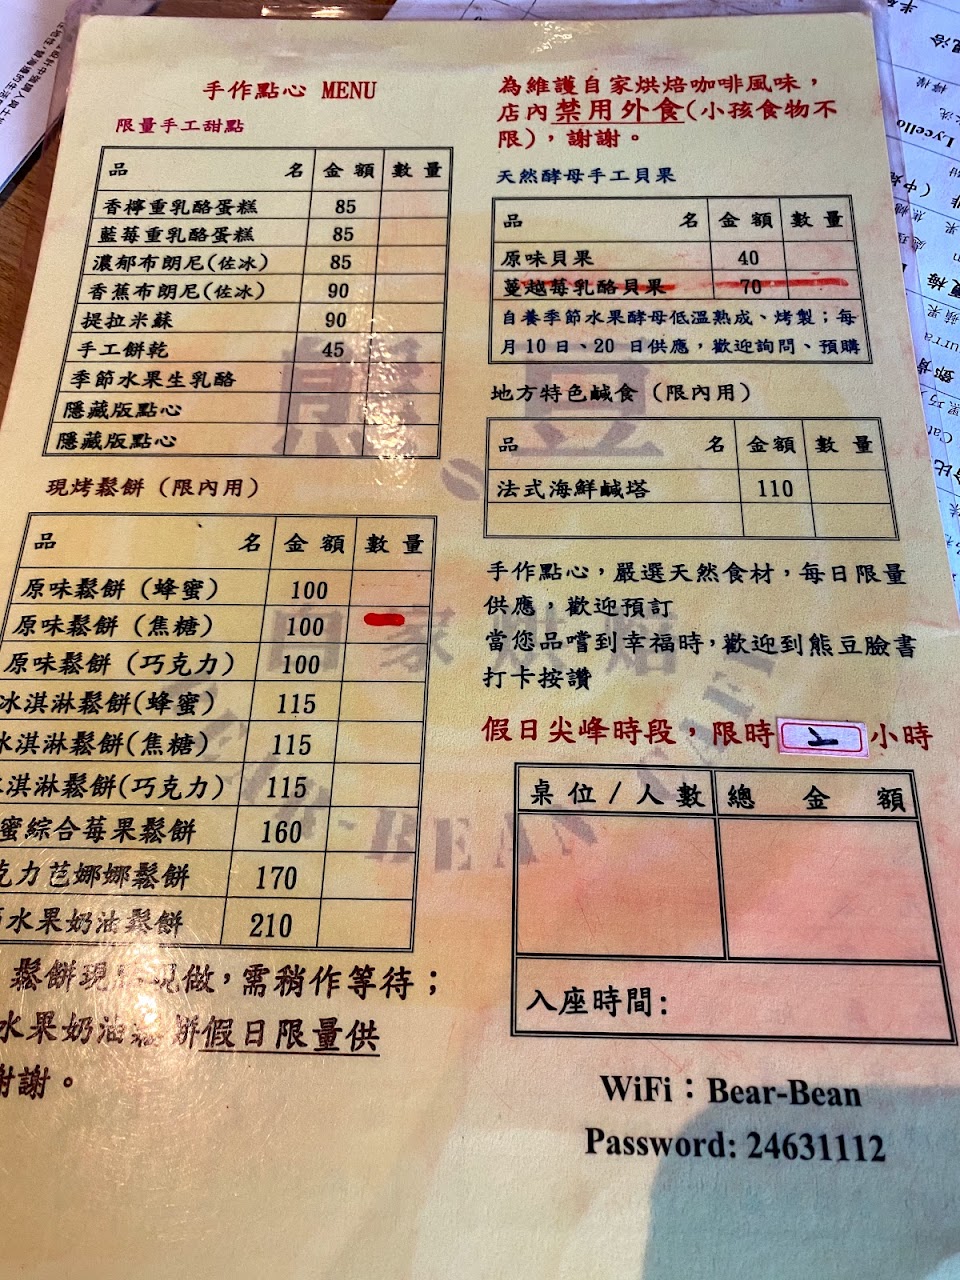 手作點心 MENU
限量手工甜點
品 名 金額 數量
香檸重乳酪蛋糕 85
藍莓重乳酪蛋糕 85
濃郁布朗尼(佐冰) 85
香蕉布朗尼(佐冰) 90
提拉米蘇 90
手工餅乾 45
季節水果生乳酪
隱藏版點心
隱藏版點心
現烤鬆餅（限內用）
品 名 金額 數量
原味鬆餅（蜂蜜） 100
原味鬆餅（焦糖） 100
原味鬆餅（巧克力） 100
冰淇淋鬆餅(蜂蜜） 115
冰淇淋鬆餅(焦糖） 115
淇淋鬆餅(巧克力） 115
蜜綜合莓果鬆餅 160
克力芭娜娜鬆餅 170
水果奶油鬆餅 210
鬆餅現 現做，需稍作等待；
水果奶油鬆餅假日限量供
謝謝。
為維護自家烘焙咖啡風味，
店內禁用外食(小孩食物不
限)，謝謝。
天然酵母手工貝果
品 名 金額 數量
原味貝果 40
蔓越莓乳酪貝果 70
自養季節水果酵母低溫熟成、烤製；每
月10日、20日供應，歡迎詢問、預購
地方特色鹹食（限內用）
品 名 金額 數量
法式海鮮鹹塔 110
手作點心，嚴選天然食材，每日限量
供應，歡迎預訂
當您品嚐到幸福時，歡迎到熊豆臉書
打卡按讚
假日尖峰時段，限時 2 小時
桌位/人數 總金額
入座時間:
WiFi：Bear-Bean
Password: 24631112
熊豆
自家烘焙
Lycello